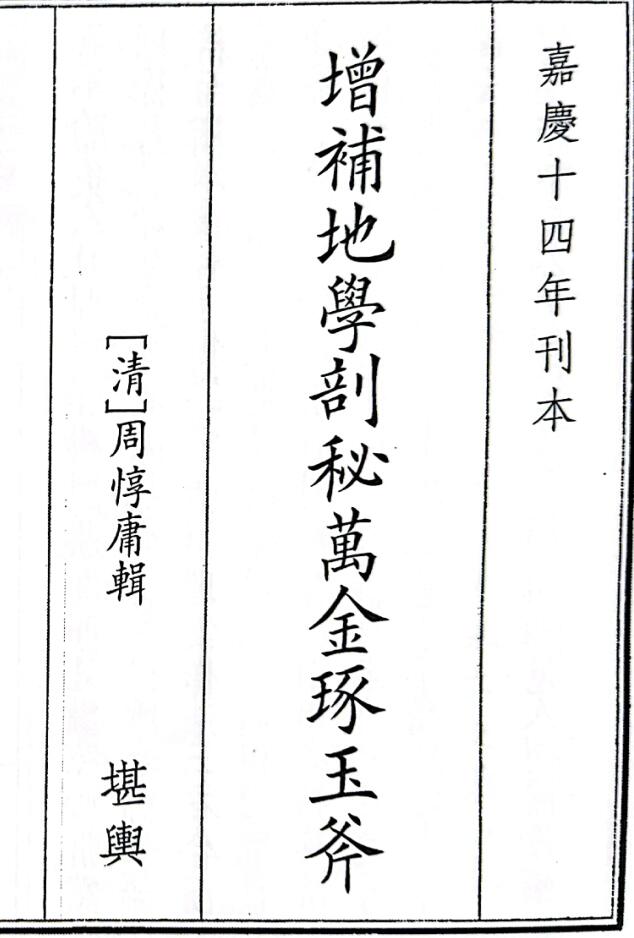 嘉慶十四年刊本
增補地學剖秘萬金琢玉斧
[清]周惇庸輯　堪輿